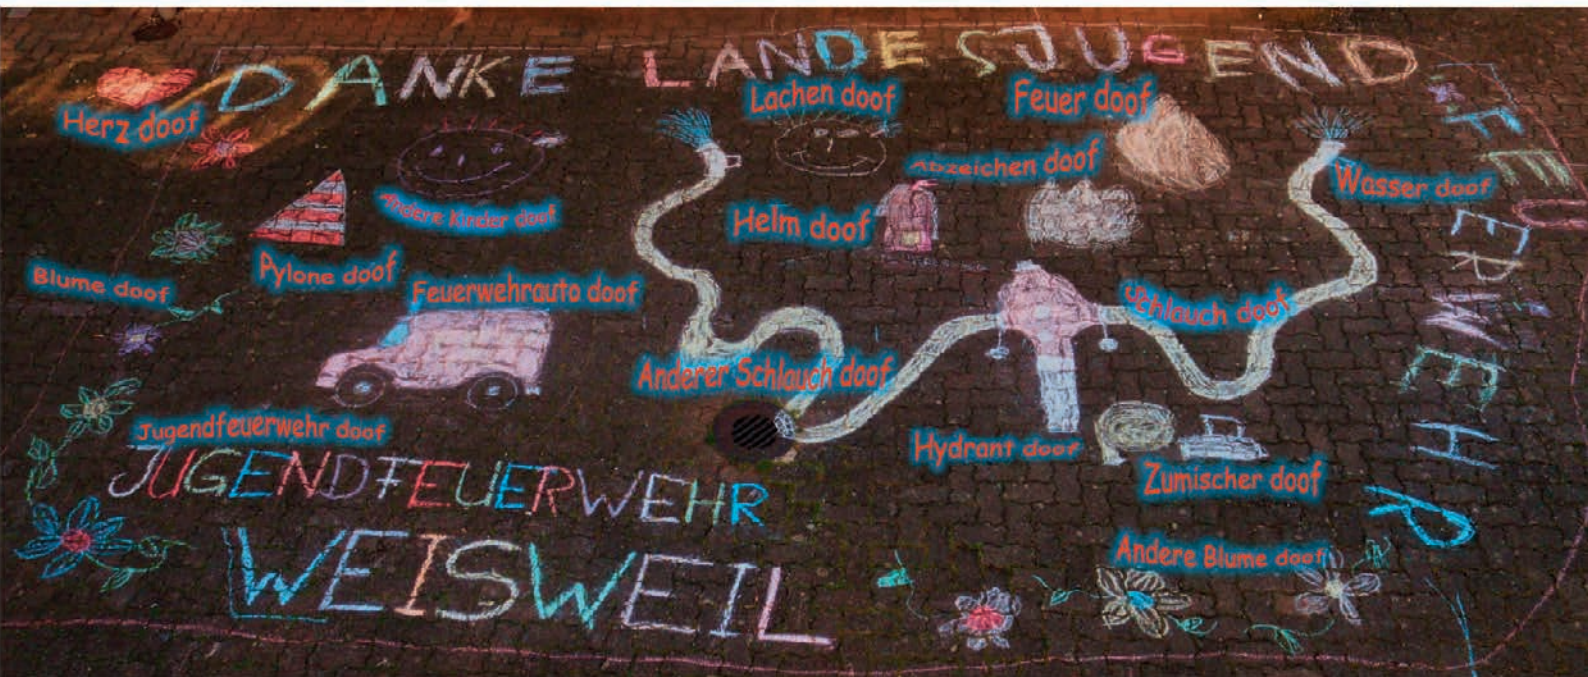 DANKE LANDESJUGEND
FEUERWEHR R
Herz doof
Lachen doof
Feuer doof
Abzeichen doof
Wasser doof
Andere Kinder doof
Helm doof
Pylone doof
Blume doof
Feuerwehrauto doof
Schlauch doof
Anderer Schlauch doof
Jugendfeuerwehr doof
Hydrant doof
Zumischer doof
JUGENDFEUERWEHR
WEISWEIL
Andere Blume doof